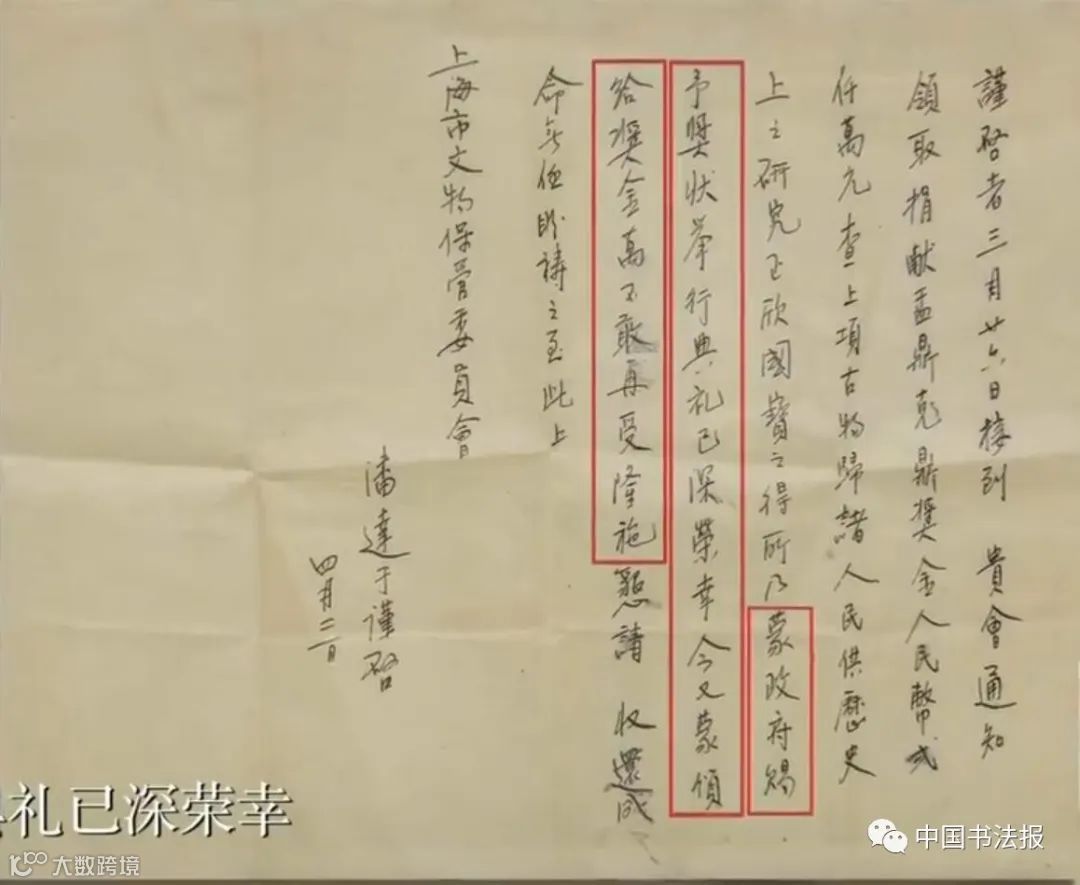 謹啓者三月廿六日接到 貴會通知
領取捐獻盂鼎克鼎獎金人民幣弍
仟萬元查上項古物歸諸人民供歷史
上之研究正欣國寶之得所乃蒙政府賜
予獎狀举行典礼已深榮幸今又蒙頒
给獎金萬不敢再受隆施懇請 收還成
命無任盼禱之至此上
上海市文物保管委員會
潘達于謹啓
四月二日
礼已深荣幸
大数跨境
中国书法报